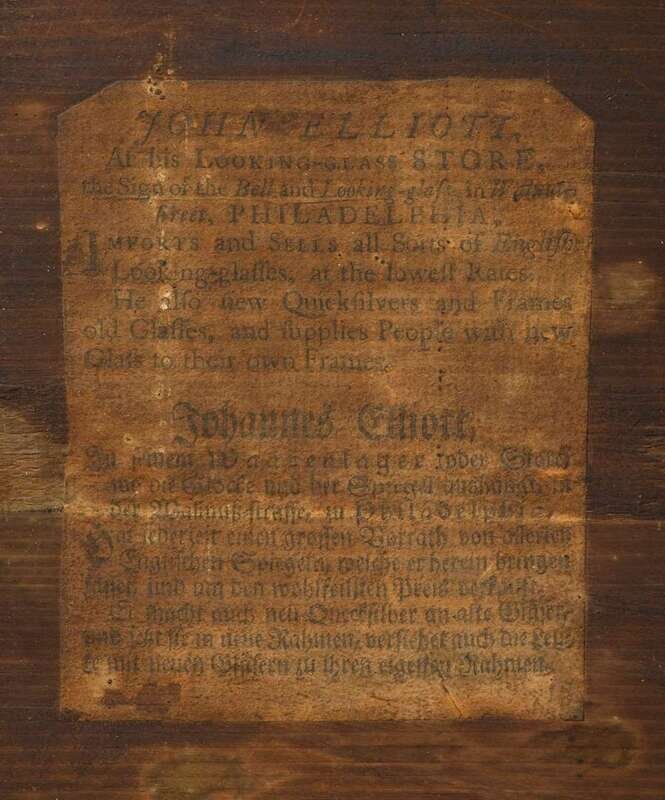 JOHN ELLIOTT,
At his LOOKING-GLASS STORE,
the Sign of the Bell and Looking-glaſs in Walnut-
ſtreet, PHILADELPHIA,
IMPORTS and SELLS all Sorts of Engliſh
Looking-glaſſes, at the loweſt Rates.
He alſo new Quickſilvers and Frames
old Glaſſes, and ſupplies People with new
Glaſs to their own Frames.
Johannes Elliott,
In ſeinem Waarenlager oder Stohr
wo die Glocke und der Spiegel aushängt, in
der Walnuß-ſtraſſe, in Philadelphia,
Hat jederzeit einen groſſen Vorrath von allerley
Engliſchen Spiegeln, welche er herein bringen
und um den wohlfeilſten Preis verkauft.
Er macht auch neu Queckſilber an alte Gläſer,
und ſetzt ſie in neue Rahmen, verſiehet auch die Leu-
te mit neuen Gläſern zu ihren eigenen Rahmen.